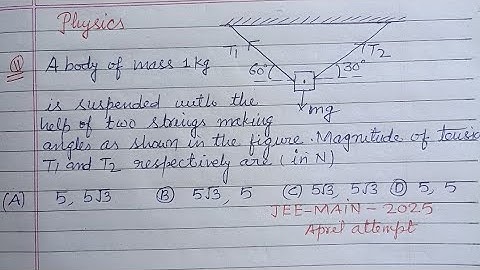 Physics
T1
T2
60°
30°
mg
(11) A body of mass 1 kg
is suspended with the
help of two strings making
angles as shown in the figure. Magnitude of tensio
T1 and T2 respectively are (in N)
(A) 5, 5√3 (B) 5√3, 5 (C) 5√3, 5√3 (D) 5, 5
JEE-MAIN - 2025
Aprel attempt